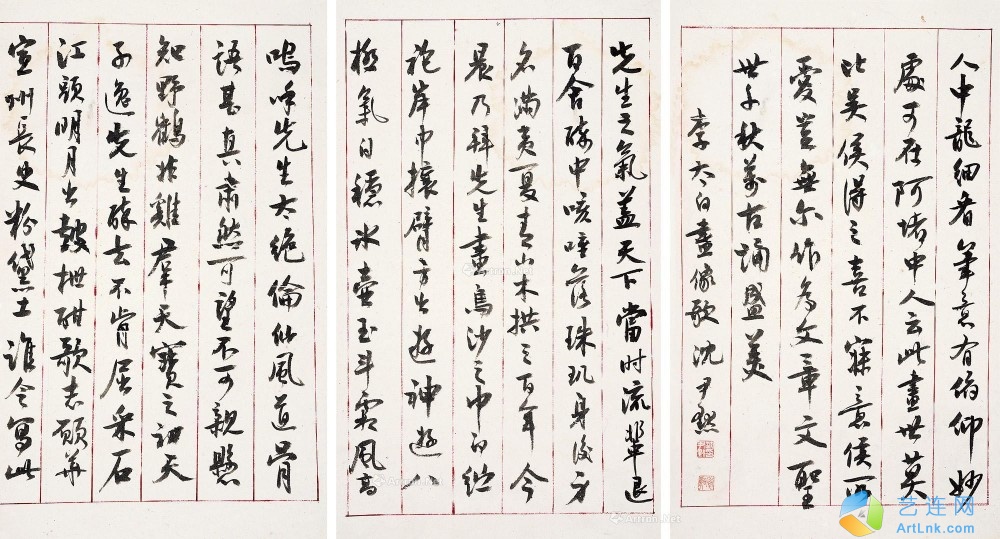 先生之氣蓋天下當时流輩退
百舍醉中咳唾落珠玑身後声
名滿夷夏青山木拱三百年今
晨乃拜先生畫烏紗之巾白紵
袍岸巾攘臂方出遊神遊八
極氣日穩冰壺玉斗霜風高
嗚呼先生太絶倫仙風道骨
語甚真肅然可望不可親懸
知野鶴於雞羣天寶之初天
子逸先生醉去不肯屈采石
江頭明月出鼓枻酣歌志願并
宣州長史粉黛士誰令寫此
人中龍細看筆意有俯仰妙
處可在阿堵中人云此畫世莫
比吴侯得之喜不寐意侯所
愛豈無尔作為文章文聖
世千秋萬古誦盛美
李太白畫像歌 沈尹默
艺连网
ArtLnk.com